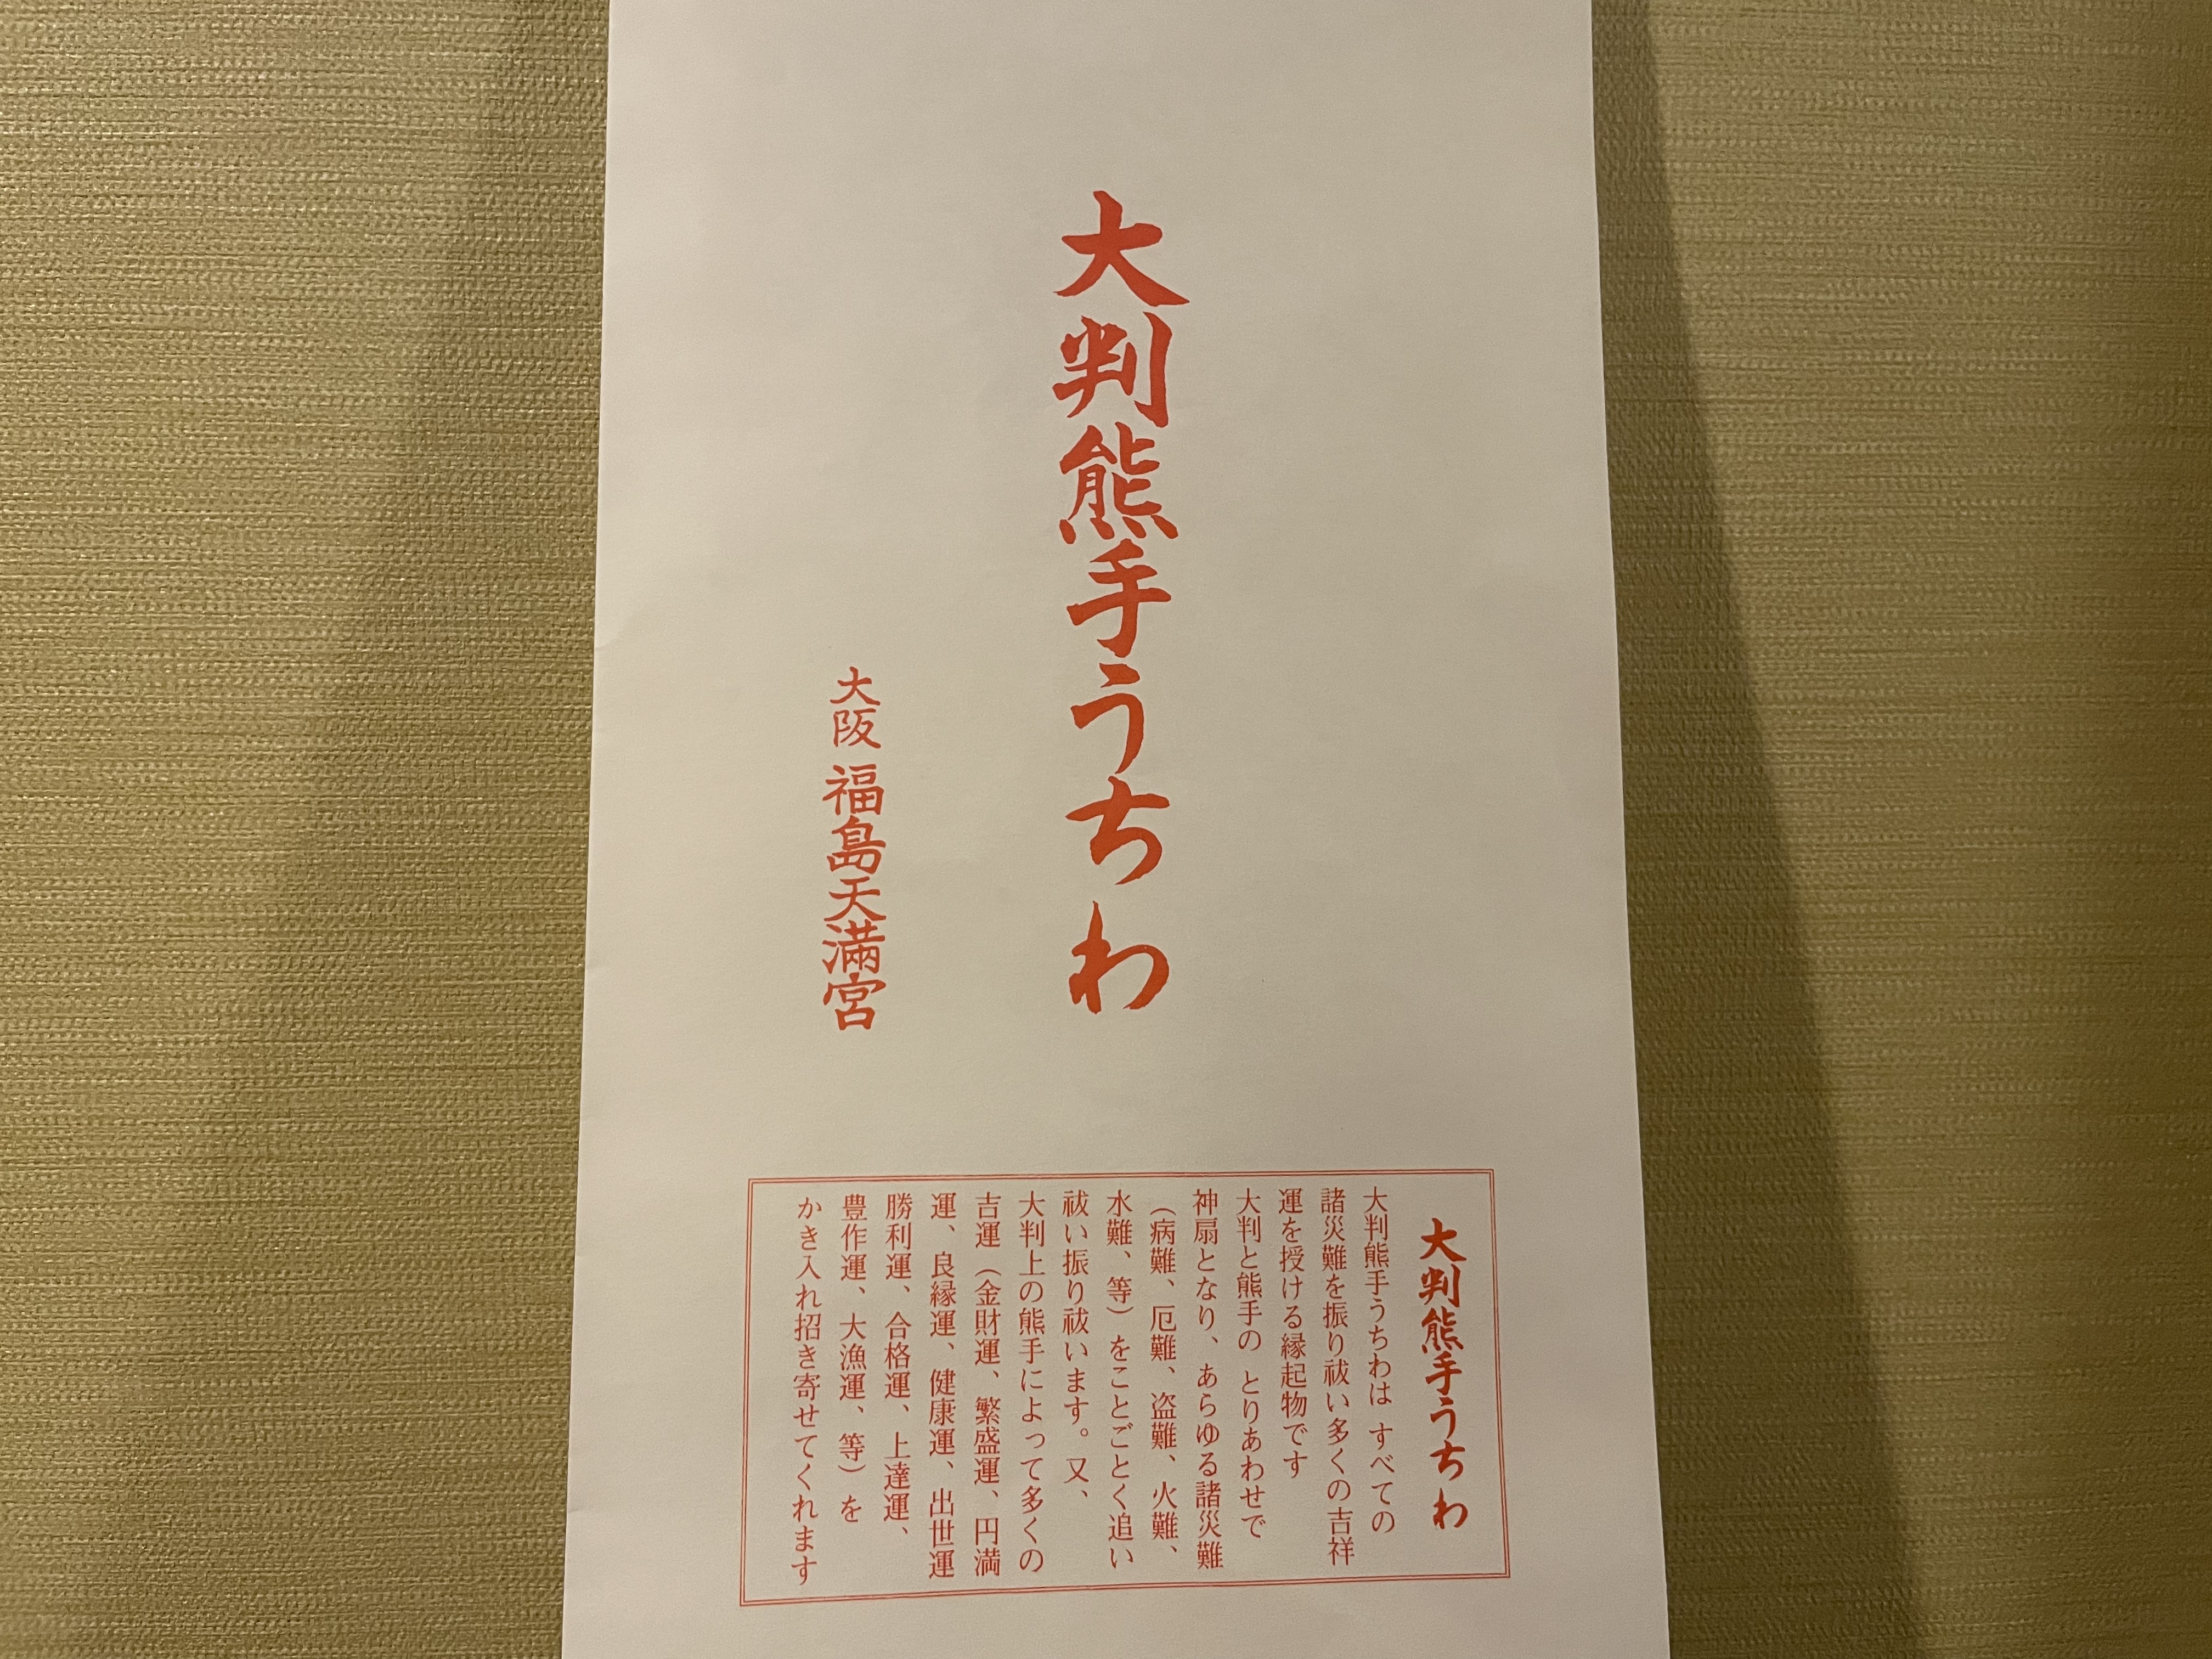 大判熊手うちわ
大阪 福島天満宮
大判熊手うちわ
大判熊手うちわは すべての
諸災難を振り祓い多くの吉祥
運を授ける縁起物です
大判と熊手の とりあわせで
神扇となり、あらゆる諸災難
（病難、厄難、盗難、火難、
水難、等）をことごとく追い
祓い振り祓います。又、
大判上の熊手によって多くの
吉運（金財運、繁盛運、円満
運、良縁運、健康運、出世運
勝利運、合格運、上達運、
豊作運、大漁運、等）を
かき入れ招き寄せてくれます